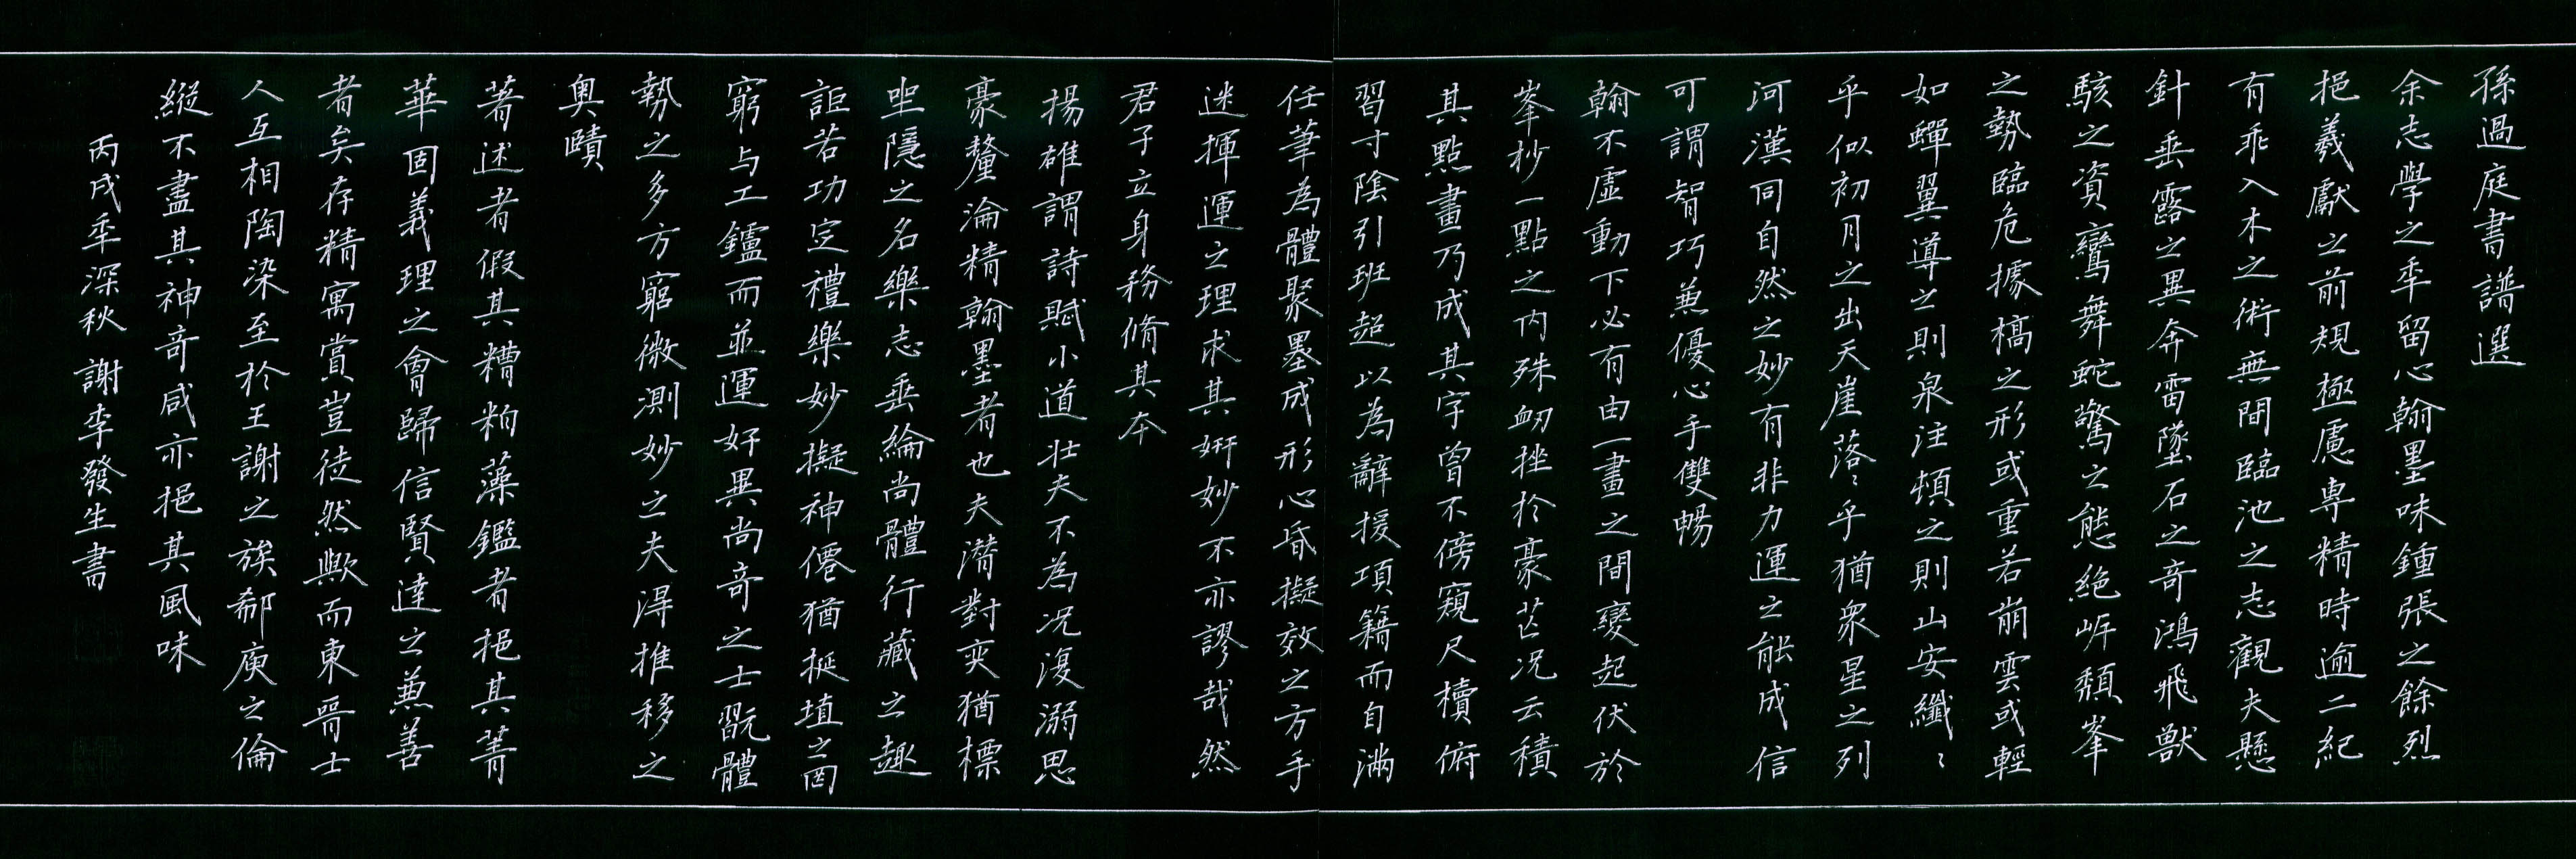 孫過庭書譜選
余志學之秊留心翰墨味鍾張之餘烈
挹羲獻之前規極慮專精時逾二紀
有乖入木之術無間臨池之志觀夫懸
針垂露之異奔雷墜石之奇鴻飛獸
駭之資鸞舞蛇驚之態絕岸頹峯
之勢臨危據槁之形或重若崩雲或輕
如蟬翼導之則泉注頓之則山安纖〻
乎似初月之出天崖落〻乎猶眾星之列
河漢同自然之妙有非力運之能成信
可謂智巧兼優心手雙暢
翰不虛動下必有由一畫之間變起伏於
峯杪一點之內殊衂挫於豪芒况云積
其點畫乃成其字曾不傍窺尺櫝俯
習寸陰引班超以為辭援項籍而自滿
任筆為體聚墨成形心昏擬效之方手
迷揮運之理求其妍妙不亦謬哉然
君子立身務脩其本
揚雄謂詩賦小道壯夫不為况復溺思
豪釐淪精翰墨者也夫潛對奕猶標
坐隱之名樂志垂綸尚體行藏之趣
詎若功宣禮樂妙擬神僊猶挻埴之罔
窮与工鑪而並運好異尚奇之士翫體
勢之多方窮微測妙之夫得推移之
奧賾
著述者假其糟粕藻鑑者挹其菁
華固義理之會歸信賢達之兼善
者矣存精寓賞豈徒然歟而東晉士
人互相陶染至於王謝之族郗庾之倫
縱不盡其神奇咸亦挹其風味
丙戌秊深秋 謝李發生書